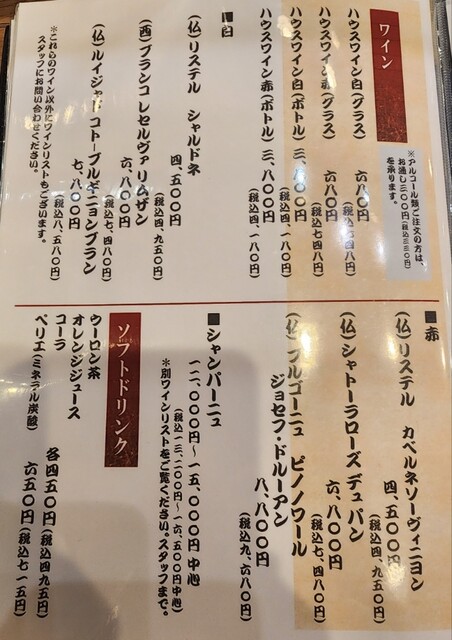 ワイン
※アルコール類ご注文の方は、
お通し三〇〇円(税込三三〇円)
を承ります。
ハウスワイン白(グラス) 六八〇円
(税込七四八円)
ハウスワイン赤(グラス) 六八〇円
(税込七四八円)
ハウスワイン白(ボトル) 三、八〇〇円
(税込四、一八〇円)
ハウスワイン赤(ボトル) 三、八〇〇円
(税込四、一八〇円)
■白
(仏)リステル シャルドネ
四、五〇〇円
(税込四、九五〇円)
(西)ブランコ レセルヴァ リムザン
六、八〇〇円
(税込七、四八〇円)
(仏)ルイジャド コトーブルギニョンブラン
七、八〇〇円
(税込八、五八〇円)
※これらのワイン以外にワインリストもございます。
スタッフにお問い合わせください。
■赤
(仏)リステル カベルネソーヴィニヨン
四、五〇〇円
(税込四、九五〇円)
(仏)シャトーラローズデュパン
六、八〇〇円
(税込七、四八〇円)
(仏)ブルゴーニュ ピノノワール
ジョセフ・ドルーアン
八、八〇〇円
(税込九、六八〇円)
■シャンパーニュ
一二、〇〇〇円〜一五、〇〇〇円 中心
(税込一三、二〇〇円〜一六、五〇〇円中心)
※別ワインリストをご覧ください。スタッフまで。
ソフトドリンク
ウーロン茶
オレンジジュース
コーラ
各四五〇円(税込四九五円)
ペリエ(ミネラル炭酸) 六五〇円(税込七一五円)